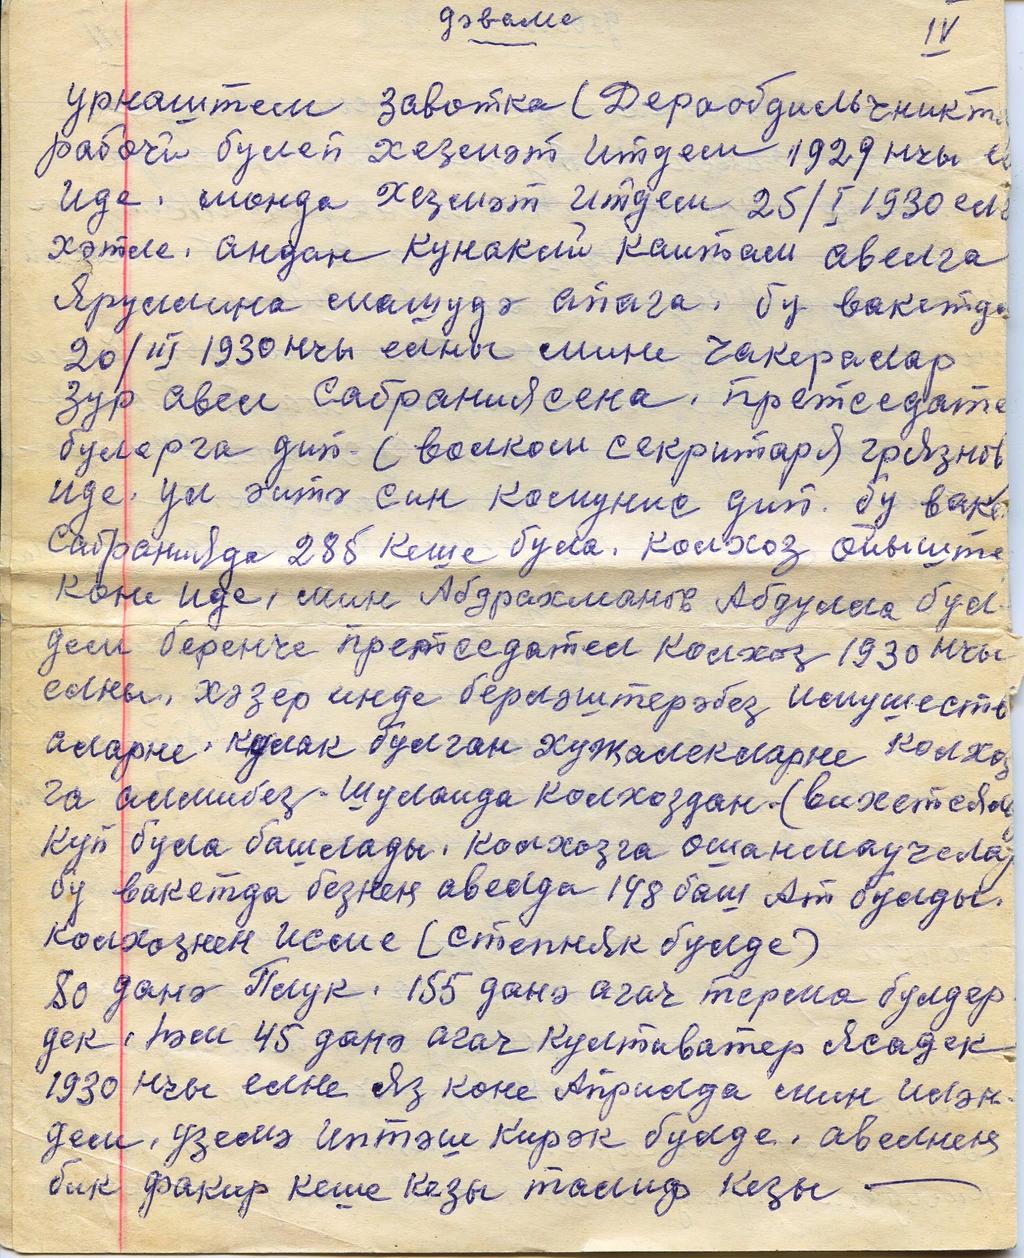 дәваме
IV
урнаштем завотка (Дераобдильчникта
рабочи булеп хезмәт итдем 1929 нчы ел
иде. монда хезмәт итдем 25/I 1930 елга
хәтле. андан кунакий кайтам авелга
Яруллина машудә апага. бу вакетда
20/III 1930 нчы елны мине чакералар
зур авел сабраниясена. претседате
буларга дип. (волком секритаря) грязнов
иде. ул әйтә син комунис дип. бу ваке
сабранияда 286 кеше була. колхоз оныште
коне иде, мин Абдрахманов Абдулла бул-
дем беренче претседател колхоз 1930 нчы
елны. хәзер инде берләштерәбез имуществ
аларне. кулак булган хужалекларне колхоз
га алмибез. Шулайда колхоздан (вихетсяла
куп була башлады. колхозга ошанмаучелар
бу вакетда безнең авелда 148 баш Ат булды.
колхознен исме (степняк булде)
80 данә Плук. 155 данә агач терма булдер-
дек, һәм 45 данә агач култиватер ясадек
1930 нчы елне яз коне Априлда мин иләң-
дем, үземә иптәш кирәк булде. авелнең
бик факир кеше кезы талиф кезы